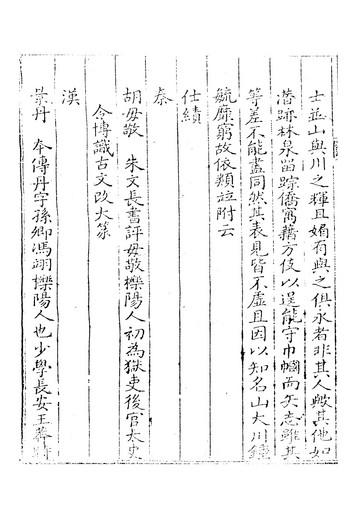 士並山與川之輝且媚有與之俱永者非其人歟其他如
潛跡林泉留踪僑寓藉方伎以逞能守巾幗而矢志雖其
等差不能盡同然其表見皆不虛且因以知名山大川鍾
毓靡窮故依類並附云
仕績
秦
胡毋敬 朱文長書評毋敬櫟陽人初為獄吏後官太史
令博識古文改大篆
漢
景丹 本傳丹字孫卿馮翊櫟陽人也少學長安王莽時